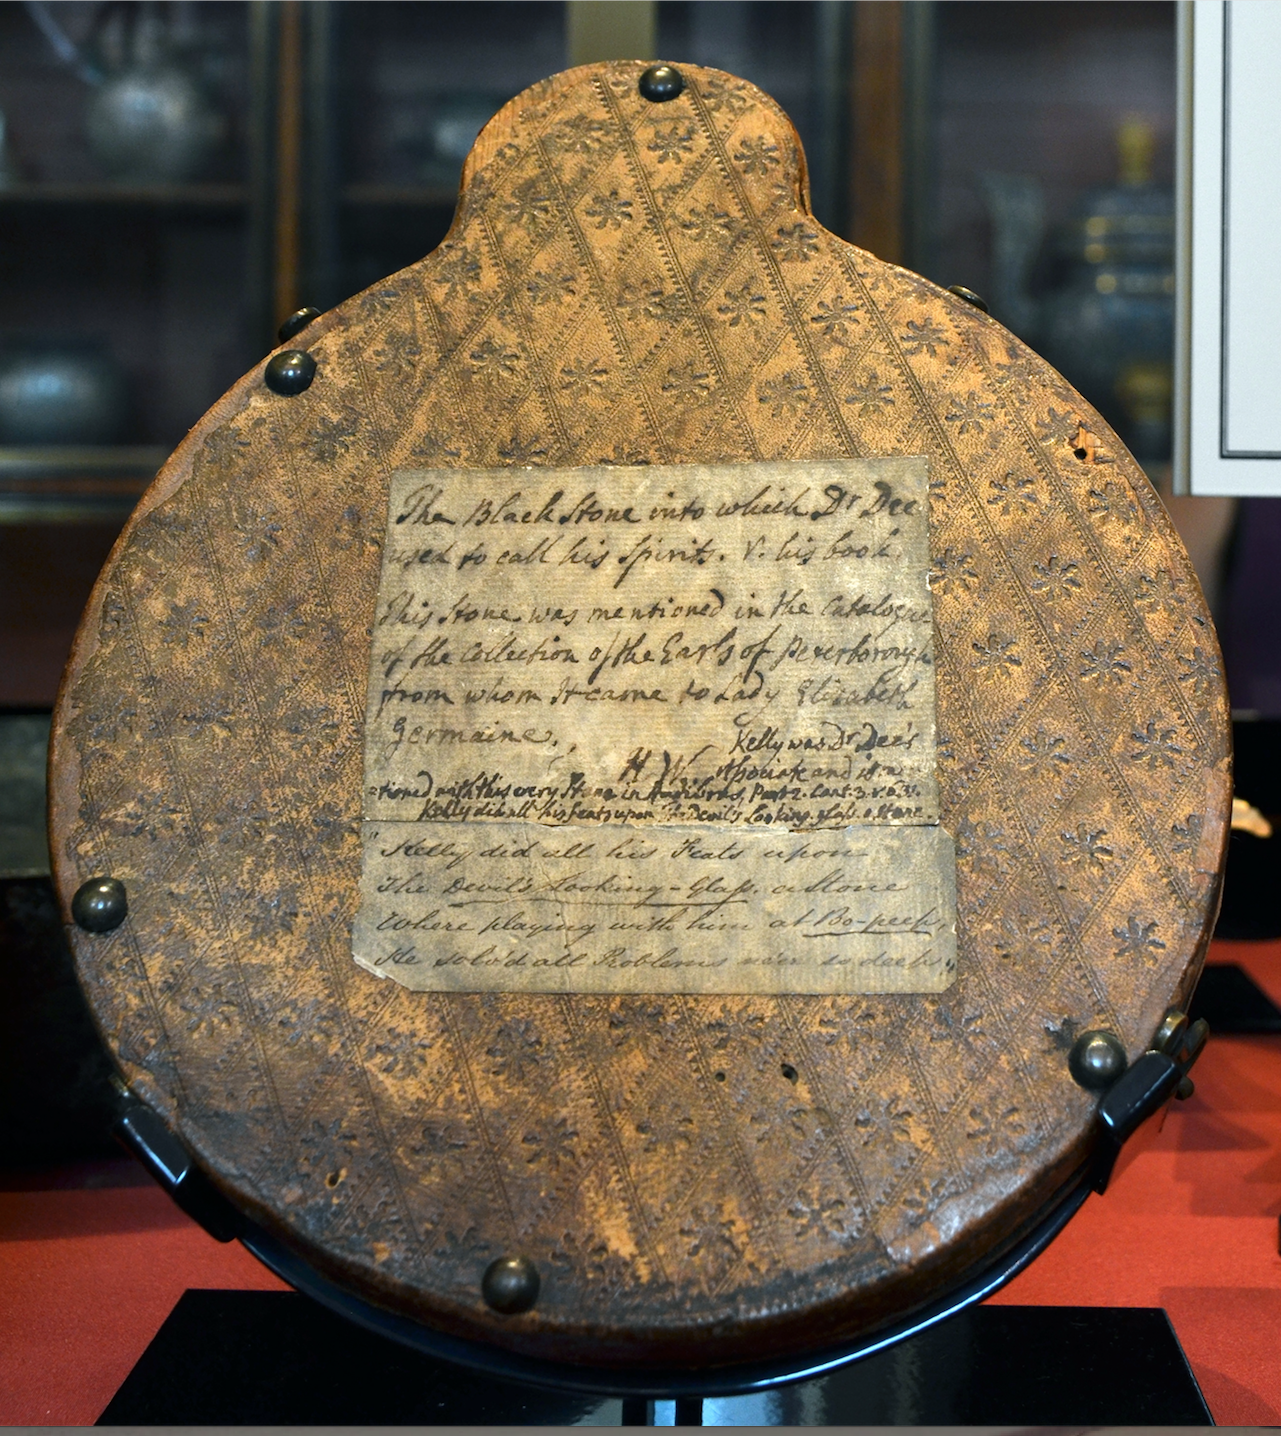 The Black Stone into which Dr Dee
used to call his Spirits. V. his book.
This Stone was mentioned in the Catalogue
of the Collection of the Earls of Peterborough
from whom It came to Lady Elizabeth
Germaine.
H W.
Kelly was Dr Dee's
Associate and is
tioned with this very Stone in Hudibras, Part 2. Cant. 3. v.
Kelly did all his feats upon The Devil's Looking-glass, a Stone.
"Kelly did all his Feats upon
The Devil's Looking-Glass, a Stone
Where playing with him at Bo-peep,
He solv'd all Problems ne'er so deep."